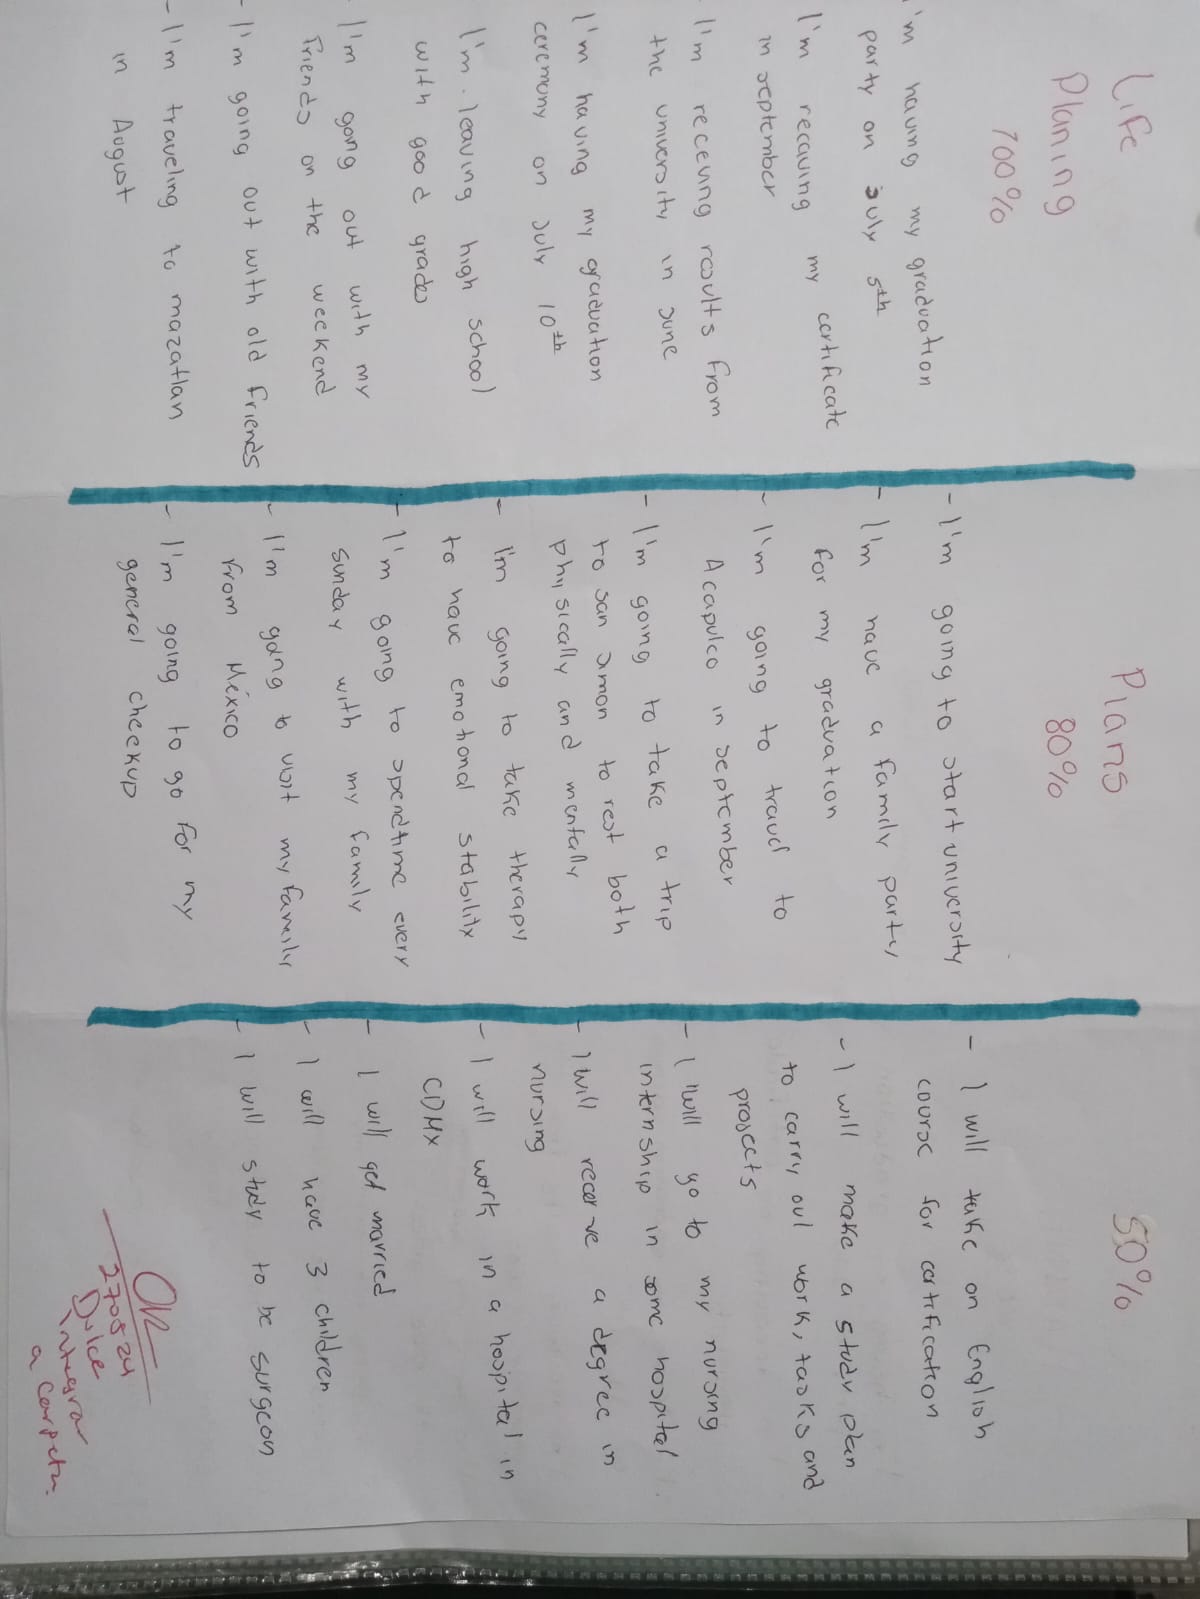 Life
Planing
100%
I'm having my graduation
party on July 5th
I'm recaving my certificate
in september
I'm receving results from
the university in June
I'm having my graduation
ceremony on July 10th
I'm leaving high school
with good grades
I'm going out with my
friends on the weekend
- I'm going out with old friends
- I'm traveling to mazatlan
in August
Plans
80%
- I'm going to start university
- I'm have a family party
for my graduation
- I'm going to travel to
Acapulco in september
- I'm going to take a trip
to san simon to rest both
physically and mentally
- I'm going to take therapy
to have emotional stability
- I'm going to spend time every
sunday with my family
- I'm going to visit my family
from México
- I'm going to go for my
general checkup
50%
- I will take on English
course for certification
- I will make a study plan
to carry out work, tasks and
projects
- I will go to my nursing
internship in some hospital
- I will receive a degree in
nursing
- I will work in a hospital in
CDMX
- I will get married
- I will have 3 children
- I will study to be surgeon
OK
270524
Dulce
integrar
a carpeta.